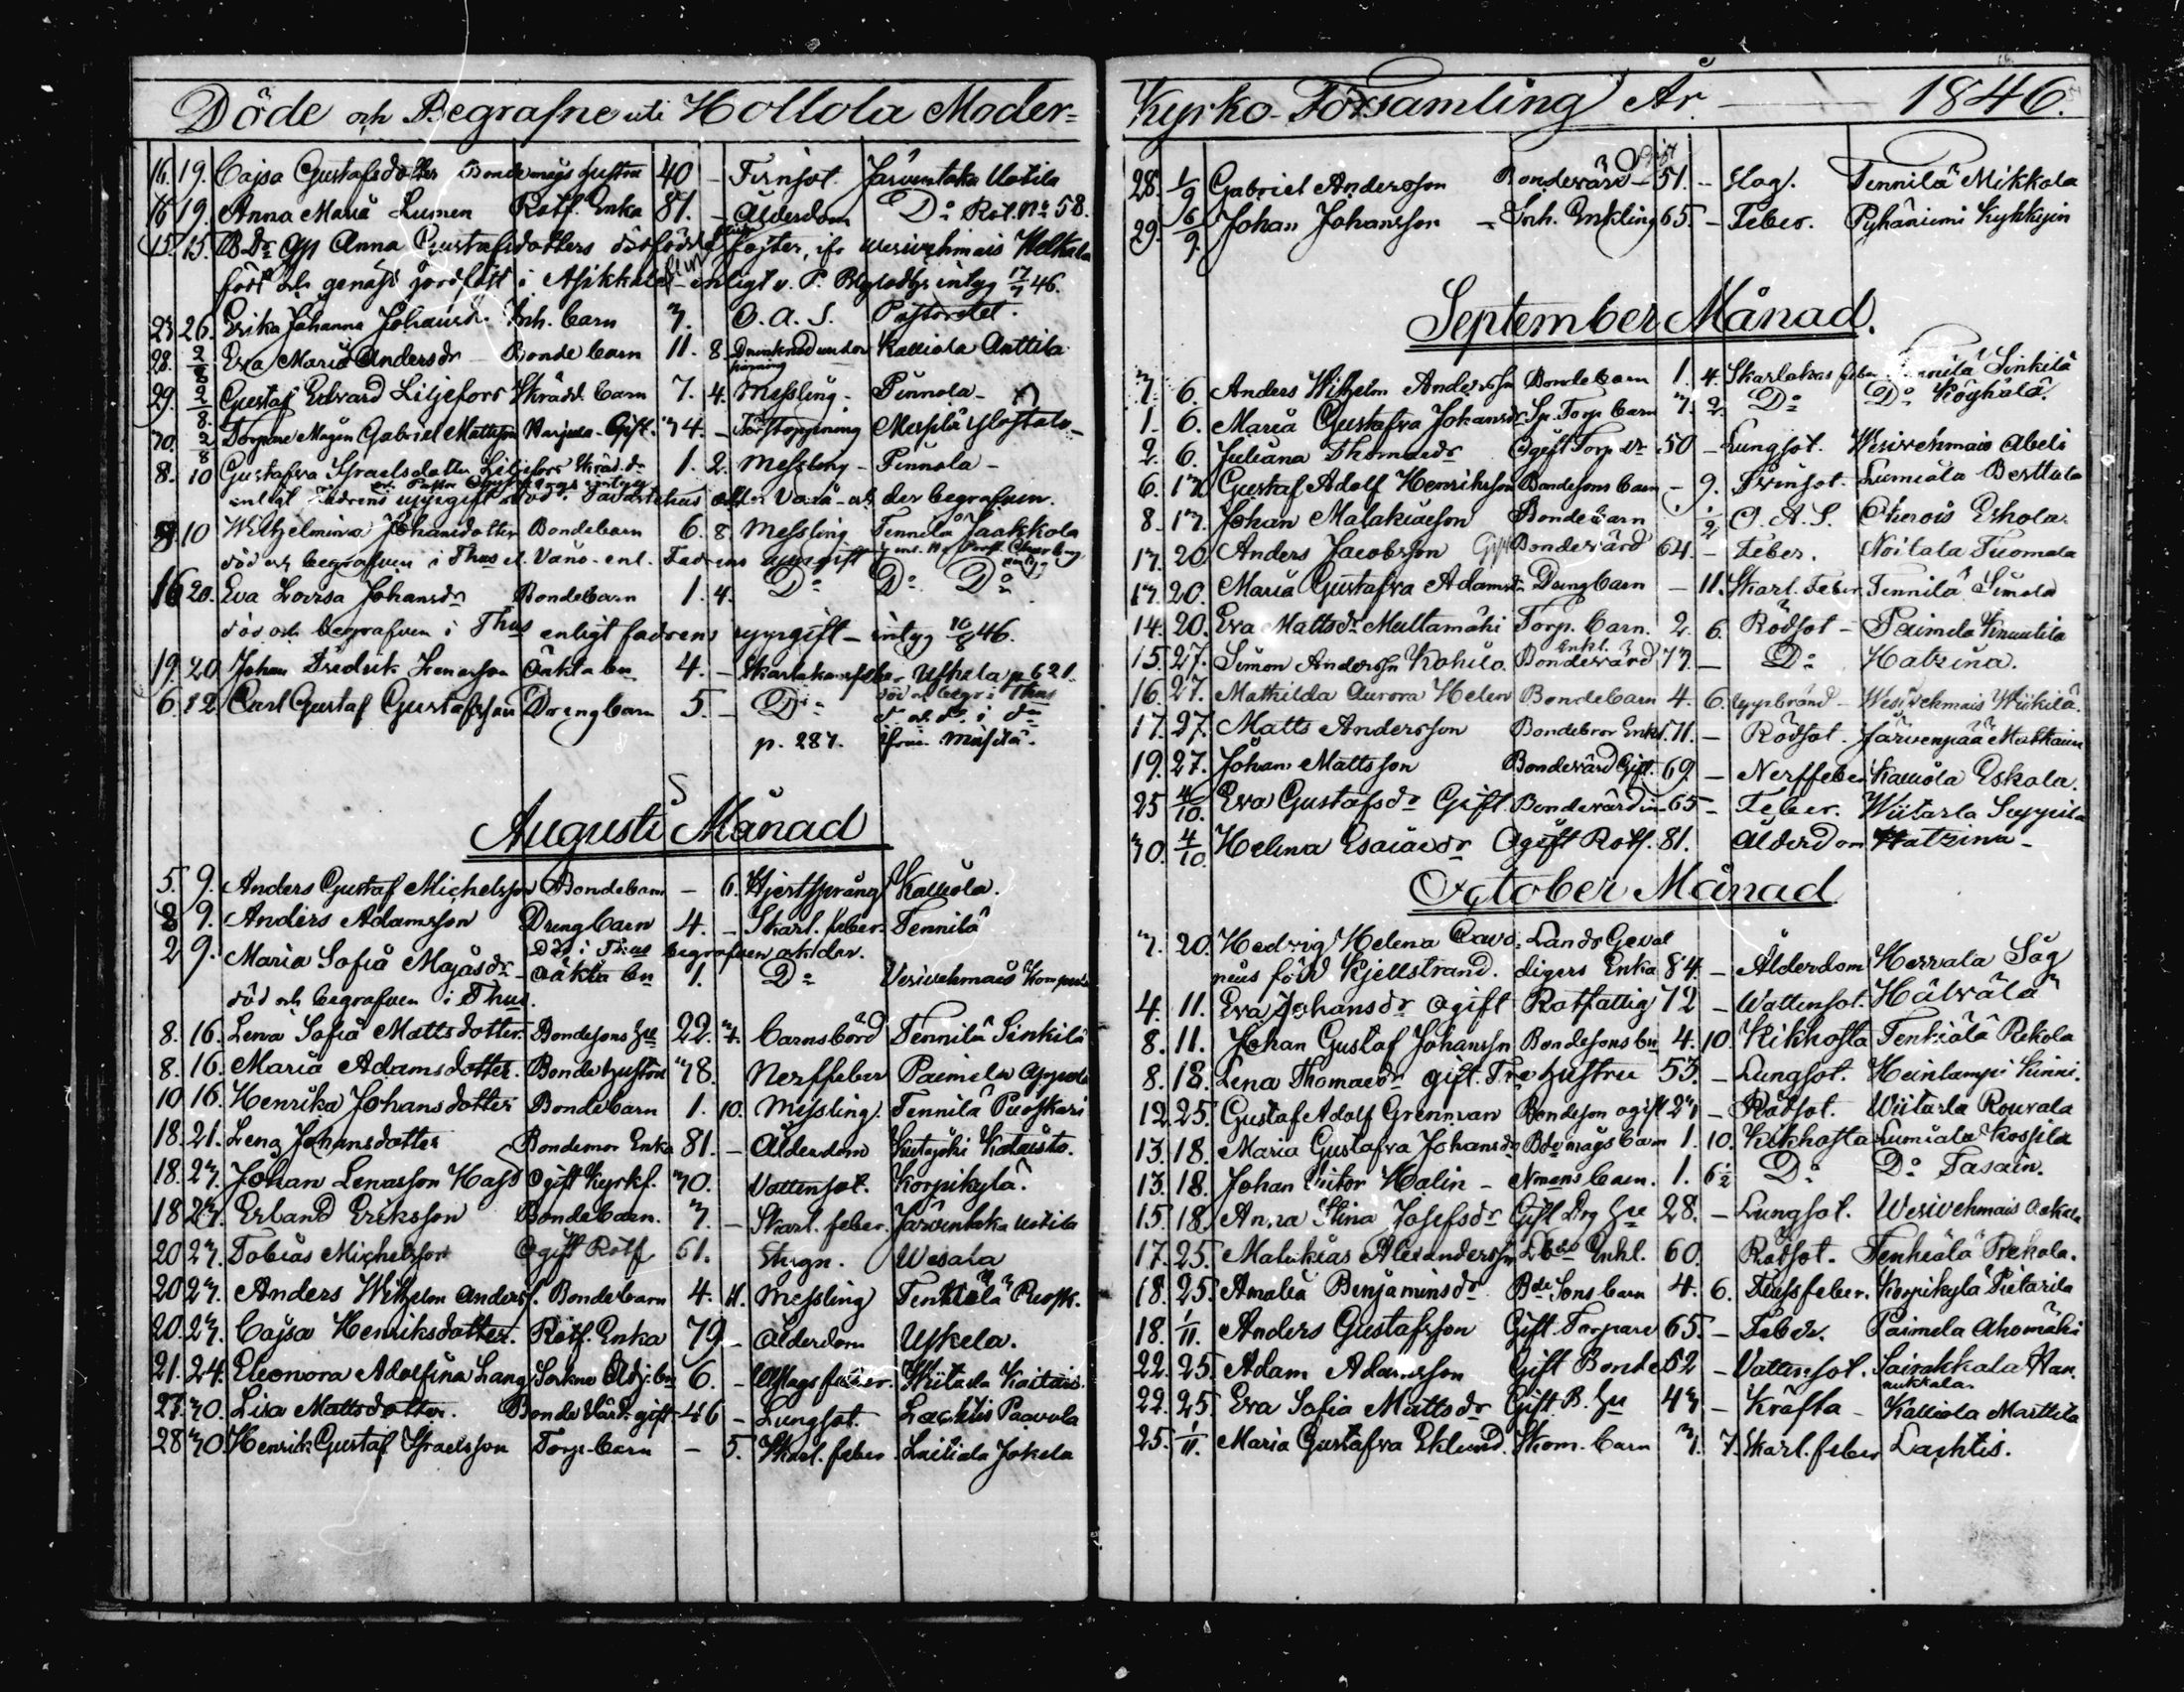 Döde och Begrafne uti Hollola Moder=
16. 19. Cajsa Gustafsdotter Bondemågs hustru 40 - Tvinsot. Järventaka Uotila
16 19. Anna Maria Lumen Rotf. Enka 87. - Ålderdom Do Rot. No 58.
15. 15. Anna Gustafsdotters dödfödda foster, ifr Wesivehmais
född och genast jordfäst i Asikkala enligt intyg 17/7 46.
23 26. Erika Johanna Inh. barn 3. O. A. S. Pastorstel.
28. 2/8 Eva Maria Andersdr Bonde barn 11. 8. Drunknad under Kalliola Anttila
29. 2/8 Gustaf Edvard Liljefors Skrädd. barn 7. 4. Messling - Pennola -
30. 2/8 Torpare Mågen Gabriel Mattsson Gift. 34. - Förstoppning
8. 10 Gustafva Israelsdotter Liljefors 1. 2. Messling - Pennola -
enligt fadrens uppgift död i och der begrafven.
8. 10 Wilhelmina Johansdotter Bondebarn 6. 8. Messling Tennilä Jaakkola
död och begrafven i Thus enl. Fadrens uppgift
16 20. Eva Lovisa Johansdr Bondebarn 1. 4. Do Do Do
död och begrafven i Thus enligt fadrens uppgift - intyg 10/8 46.
19. 20 Johan Fredrik Oäkta bn 4. - Skarlakansfeber Uskela p 621.
död och begr. i Thus
6. 12 Carl Gustaf Gustafsson Drengbarn 5. - Do
p. 287. från
Augusti Månad
5. 9. Anders Gustaf Michelsson Bondebarn - 6. Hjertsprång Kalliola.
8 9. Anders Adamsson Drengbarn 4. - Skarl. feber. Tennilä
Död i Thus begrafven och der.
2 9. Maria Sofia Oäkta bn 1. Do Vesivehmais
död och begrafven i Thus.
8. 16. Lena Sofia Mattsdotter Bondesons hu 22. 4. Barnsbörd Tennilä Sinkilä
8. 16. Maria Adamsdotter. Bondehustru 38. Nerffeber Paimela
10 16. Henrika Johansdotter Bondebarn 1. 10. Messling. Tennilä Puoskari
18. 21. Lena Johansdotter Bondemor Enka 81. - Ålderdom Kutajoki Kataisto.
18. 23. Johan Lenasson Hass Ogift Kyrkf. 30. Vattensot. Korpikylä.
18 23. Erland Eriksson Bondebarn. 3. - Skarl. feber. Järventaka Uotila
20 23. Tobias Michelsson Ogift Rotf 61. Stygn. Wesala
20 23. Anders Wilhelm Anderss. Bondebarn 4. 4. Messling Puosk.
20. 23. Cajsa Henriksdotter. Rotf. Enka 79 - Ålderdom Uskela.
21. 24. Eleonora Adolfina Lang 6. -
27. 30. Lisa Mattsdotter. Bonde Värd. gift 46 - Lungsot. Lachtis Paavola
28 30. Henrik Gustaf Israelsson Torp. barn - 5. Skarl. feber Laitiala Jokela
Kyrko-Församling År 1846.
28. 1/9 Gabriel Andersson Bondevärd - Gift 51. - Slag. Tennilä Mikkola
29. 6/9. Johan Johansson - Inh. Enkling 65. - Feber. Pyhäniemi
September Månad.
3. 6. Anders Wilhelm Andersson Bondebarn 1. 4. Skarlakans feber Tennilä Sinkilä
1. 6. Maria Gustafva Johansdr Sp. Torp barn 3. 2. Do Do
2. 6. Juliana Thomasdr Ogift Torp dr 50 - Lungsot. Wesivehmais Abeli
6. 13. Gustaf Adolf Henriksson Bondesons barn - 9. Tvinsot. Lumiala Perttula
8. 13. Johan Malakiasson Bondebarn - ½ O. A. S. Okerois Eskola.
17. 20 Anders Jacobsson Gift Bondevärd 64. - Feber. Noitala Tuomola
17. 20. Maria Gustafva Adamsdr Drengbarn - 11. Skarl. Feber. Tennilä Simola
14. 20. Eva Mattsdr Multamäki Torp. barn. 2. 6. Rödsot - Paimela Knuutila
15. 27. Simon Andersson Kohilo. Enkl. Bondevärd 73. - Do Hatsina.
16. 27. Mathilda Aurora Helen Bondebarn 4. 6. uppbränd - Wesivehmais Wiikilä.
17. 27. Matts Andersson Bondebror Enkl. 71. - Rödsot. Järvenpää
19. 27. Johan Mattsson Bondevärd Gift. 69. - Nerffeber Kalliola Eskola.
25 4/10. Eva Gustafsdr Gift. Bondevärdin 65 - Feber. Wiitaila Seppilä
30. 4/10. Helena Esaiaedr Ogift Rotf. 81. Ålderdom Hatsina -
October Månad
3. 20. Hedvig Helena Cavo: Lands Geval
nius född Kjellstrand. digers Enka 84. - Ålderdom Herrala Såg
4. 11. Eva Johansdr ogift Rotfattig 72 - Wattensot. Hälvälä
8. 11. Johan Gustaf Johansson Bondesons bn 4. 10. Kikhosta Tenhiälä Rekola
8. 18. Lena Thomasdr gift. Tre hustru 53. - Lungsot. Heinlampi Sunni.
12. 25. Gustaf Adolf Grennman Bondeson ogift 23 - Rödsot. Wiitaila Rouvala
13. 18. Maria Gustafva Johansdr Bdemågs barn 1. 10. Kikhosta Lumiala Kossila
13. 18. Johan Victor Malin - Nmans barn. 1. 6½ Do Do Tasain.
15. 18. Anna Stina Josefsdr Gift Drg hu 28. - Lungsot. Wesivehmais
17. 25. Malakias Alexandersson Enkl. 60. Rödsot. Tenhiälä Rekola.
18. 25. Amalia Benjaminsdr Bde Sons barn 4. 6. Flussfeber. Korpikylä Pietarila
18. 1/11. Anders Gustafsson Gift Torpare 65. - Feber. Paimela Ahomäki
22. 25. Adam Adamsson Gift Bonde 52 - Vattensot. Sairakkala Han
nukkala.
22. 25. Eva Sofia Mattsdr Gift B. hu 43 - Kräfta - Kalliola Marttila
25. 1/11. Maria Gustafva Eklund. Skom. barn 3. 7. Skarl. feber Lachtis.